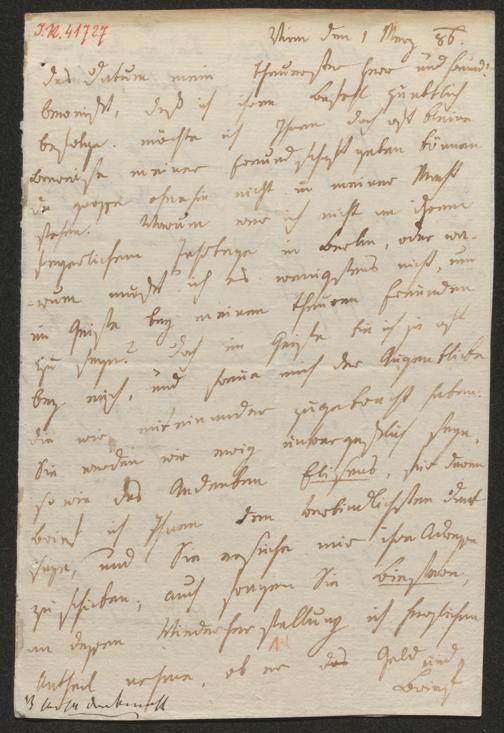 I.N. 41727
Wien den 1 März 86.
das Datum mein theuerster Herr und Freund!
beweißt, daß ich Ihren Befehl pünktlich
befolge. möchte ich Ihnen doch oft kleine
Beweise meiner Freundschaft geben können
da große ohnehin nicht in meiner Macht
stehen. Warum war ich nicht an Ihrem
feyerlichen Festtage in Berlin, oder wa-
rum mußt ich es wenigstens nicht, um
im Geiste bey meinen theuren Freunden
zu seyn? doch im Geiste bin ich ja oft
bey mich, und freue mich der Augenblicke
die wir miteinander zugebracht haben.
Sie werden mir ewig unvergeßlich seyn,
so wie das Andenken Elisens, für deren
Brief ich Ihnen den verbindlichsten Dank
sage, und Sie ersuche mir ihre Adresse
zu schicken; auch sagen Sie
an dessen Wiederherstellung ich herzlichen
Antheil nehme, ob er das Geld und
Brief